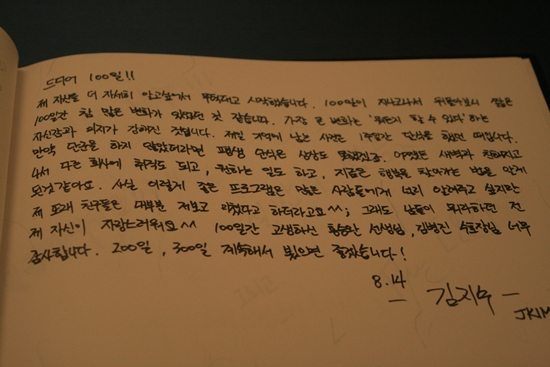 드디어 100일!!
제 자신을 더 자세히 알고싶어서 무턱대고 시작했습니다. 100일이 지나고나서 뒤돌아보니 짧은
100일간 참 많은 변화가 있었던 것 같습니다. 가장 큰 변화는 '뭐든지 할 수 있다'는
자신감과 의지가 강해진 것입니다. 제일 기억에 남는 사건은 1주일간 단식을 했던 때입니다.
만약 단군을 하지 않았더라면 평생 단식은 상상도 못했겠죠. 어쨌든 새벽과 친해지고
나서 다른 회사에 취직도 되고, 원하는 일도 하고, 지금은 행복을 찾아가는 법을 알게
된것같아요. 사실 이렇게 좋은 프로그램은 많은 사람들에게 널리 알려주고 싶지만
제 또래 친구들은 대부분 저보고 미쳤다고 하더라고요^^; 그래도 남들이 뭐라하던 전
제 자신이 자랑스러워요^^ 100일간 고생하신 선생님, 김병진 수호장님 너무
감사합니다. 200일, 300일 계속해서 뵜으면 좋겠습니다!
8.14
- 김지수 -
JKIM